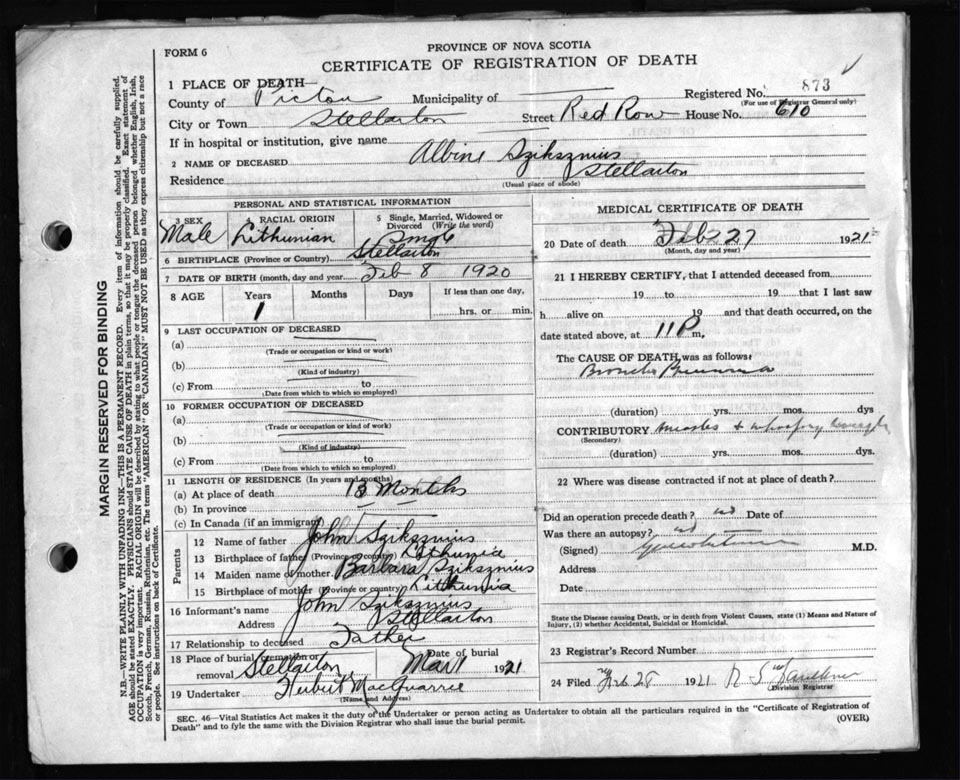 FORM 6
PROVINCE OF NOVA SCOTIA
CERTIFICATE OF REGISTRATION OF DEATH
1 PLACE OF DEATH—
Registered No. 873
(For use of Registrar General only)
County of Pictou Municipality of
City or Town Stellarton Street Red Row House No. 610
If in hospital or institution, give name
2 NAME OF DECEASED Albine Sziksznius
Residence Stellarton
(Usual place of abode)
PERSONAL AND STATISTICAL INFORMATION
3 SEX Male
4 RACIAL ORIGIN Lithunian
5 Single, Married, Widowed or Divorced (Write the word)
6 BIRTHPLACE (Province or Country) Stellarton
7 DATE OF BIRTH (month, day and year) Feb 8 1920
8 AGE Years Months Days If less than one day,
1 hrs. or min.
9 LAST OCCUPATION OF DECEASED
(a)
(Trade or occupation or kind or work)
(b)
(Kind of industry)
(c) From to
(Date from which to which so employed)
10 FORMER OCCUPATION OF DECEASED
(a)
(Trade or occupation or kind of work)
(b)
(Kind of industry)
(c) From to
(Date from which to which so employed)
11 LENGTH OF RESIDENCE (In years and months)
(a) At place of death 13 Months
(b) In province
(c) In Canada (if an immigrant)
Parents
12 Name of father John Sziksznius
13 Birthplace of father (Province or country) Lithunia
14 Maiden name of mother Barbara Sziksznius
15 Birthplace of mother (Province or country) Lithunia
16 Informant's name John Sziksznius
Address Stellarton
17 Relationship to deceased Father
18 Place of burial, cremation or removal Stellarton Date of burial Mar 1 1921
19 Undertaker Hubert MacQuarrie
(Name and Address)
MEDICAL CERTIFICATE OF DEATH
20 Date of death Feb 27 1921
(Month, day and year)
21 I HEREBY CERTIFY, that I attended deceased from
19 to 19 that I last saw
h alive on 19 and that death occurred, on the
date stated above, at 11 P m,
The CAUSE OF DEATH, was as follows:
Broncho
(duration) yrs. mos. dys
CONTRIBUTORY measles + whooping cough
(Secondary)
(duration) yrs. mos. dys.
22 Where was disease contracted if not at place of death?
Did an operation precede death? no Date of
Was there an autopsy? no
(Signed) M.D.
Address
Date
State the Disease causing Death, or in death from Violent Causes, state (1) Means and Nature of
Injury, (2) whether Accidental, Suicidal or Homicidal.
23 Registrar's Record Number
24 Filed Feb 28 1921
Division Registrar
SEC. 46—Vital Statistics Act makes it the duty of the Undertaker or person acting as Undertaker to obtain all the particulars required in the "Certificate of Registration of
Death" and to fyle the same with the Division Registrar who shall issue the burial permit.
(OVER)
MARGIN RESERVED FOR BINDING
N.B.—WRITE PLAINLY WITH UNFADING INK—THIS IS A PERMANENT RECORD. Every item of information should be carefully supplied.
AGE should be stated EXACTLY. PHYSICIANS should STATE CAUSE OF DEATH in plain terms, so that it may be properly classified. Exact statement of
OCCUPATION is very important. RACIAL ORIGIN will be described by stating to what people or tongue the deceased person belonged whether English, Irish,
Scotch, French, German, Russian, Ruthenian, etc. The terms "AMERICAN" OR "CANADIAN" MUST NOT BE USED as they express citizenship but not a race
or people. See instructions on back of Certificate.